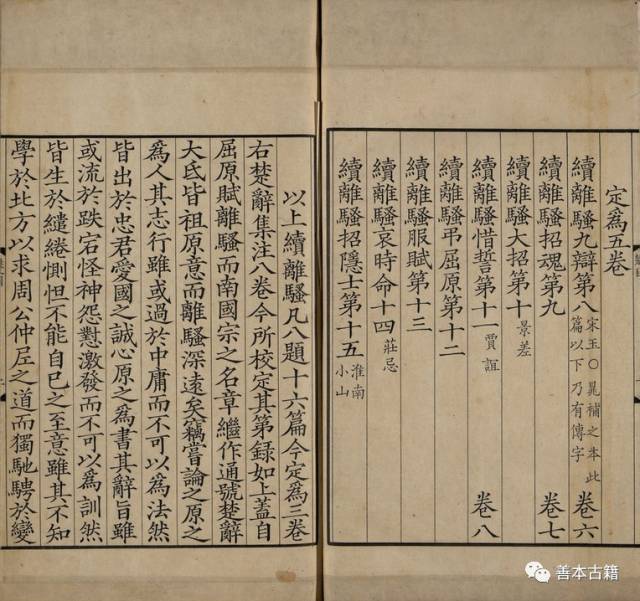 定為五卷
續離騷九辯第八 宋玉〇晁補之本此篇以下乃有傳字 卷六
續離騷招魂第九 卷七
續離騷大招第十 景差
續離騷惜誓第十一 賈誼 卷八
續離騷弔屈原第十二
續離騷服賦第十三
續離騷哀時命十四 莊忌
續離騷招隱士第十五 淮南小山
以上續離騷凡八題十六篇今定為三卷
右楚辭集注八卷今所校定其第錄如上蓋自
屈原賦離騷而南國宗之名章繼作通號楚辭
大氐皆祖原意而離騷深遠矣竊嘗論之原之
為人其志行雖或過於中庸而不可以為法然
皆出於忠君愛國之誠心原之為書其辭旨雖
或流於跌宕怪神怨懟激發而不可以為訓然
皆生於繾綣惻怛不能自已之至意雖其不知
學於北方以求周公仲尼之道而獨馳騁於變
善本古籍